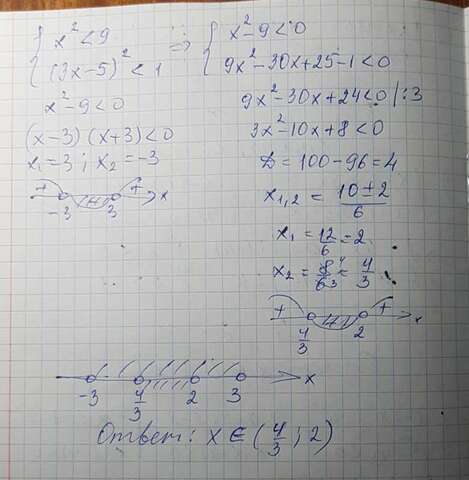 { x² < 9
(3x-5)² < 1 => { x²-9<0
9x²-30x+25-1<0
x²-9<0
(x-3)(x+3)<0
x₁=3; x₂=-3
+ - + x
-3 3
9x²-30x+24<0 |:3
3x²-10x+8<0
D=100-96=4
x₁,₂ = 10±2/6
x₁ = 12/6 = 2
x₂ = 8⁴/6₃ = 4/3
+ - + x
4/3 2
-3 4/3 2 3 x
Ответ: x ∈ (4/3; 2)